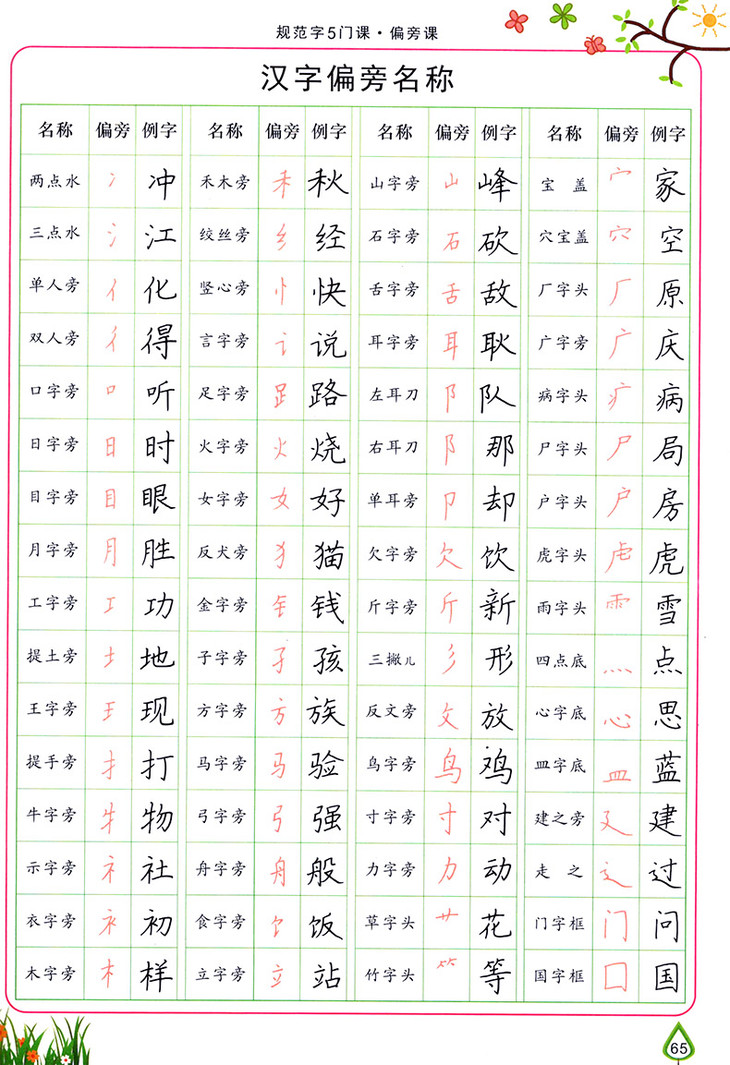 规范字5门课·偏旁课
汉字偏旁名称
名称 偏旁 例字 名称 偏旁 例字 名称 偏旁 例字 名称 偏旁 例字
两点水 冫 冲 禾木旁 禾 秋 山字旁 山 峰 宝盖 宀 家
三点水 氵 江 绞丝旁 纟 经 石字旁 石 砍 穴宝盖 穴 空
单人旁 亻 化 竖心旁 忄 快 舌字旁 舌 敌 厂字头 厂 原
双人旁 彳 得 言字旁 讠 说 耳字旁 耳 耿 广字旁 广 庆
口字旁 口 听 足字旁 𧾷 路 左耳刀 阝 队 病字头 疒 病
日字旁 日 时 火字旁 火 烧 右耳刀 阝 那 尸字头 尸 局
目字旁 目 眼 女字旁 女 好 单耳旁 卩 却 户字头 户 房
月字旁 月 胜 反犬旁 犭 猫 欠字旁 欠 饮 虎字头 虍 虎
工字旁 工 功 金字旁 钅 钱 斤字旁 斤 新 雨字头 ⻗ 雪
提土旁 土 地 子字旁 子 孩 三撇儿 彡 形 四点底 灬 点
王字旁 王 现 方字旁 方 族 反文旁 攵 放 心字底 心 思
提手旁 扌 打 马字旁 马 验 鸟字旁 鸟 鸡 皿字底 皿 蓝
牛字旁 牜 物 弓字旁 弓 强 寸字旁 寸 对 建之旁 廴 建
示字旁 礻 社 舟字旁 舟 般 力字旁 力 动 走之 辶 过
衣字旁 衤 初 食字旁 饣 饭 草字头 艹 花 门字框 门 问
木字旁 木 样 立字旁 立 站 竹字头 ⺮ 等 国字框 囗 国
65